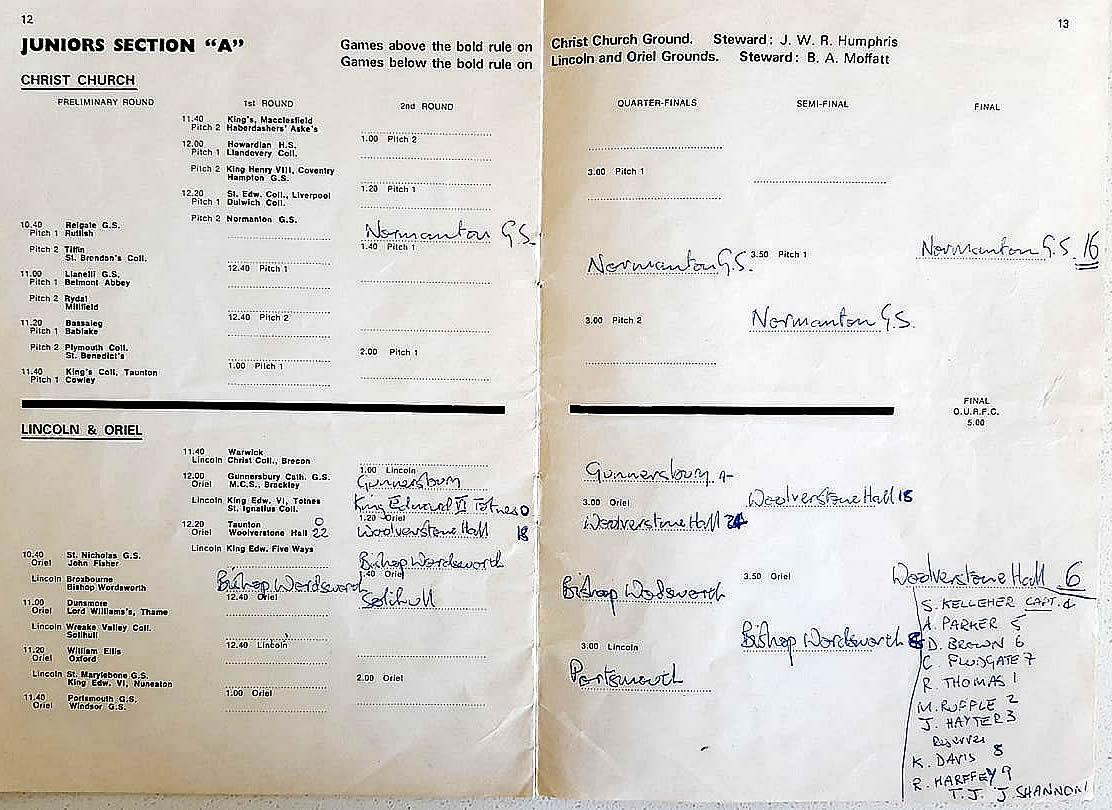 12
JUNIORS SECTION "A"
Games above the bold rule on
Games below the bold rule on
CHRIST CHURCH
PRELIMINARY ROUND
1st ROUND
2nd ROUND
11.40 King's, Macclesfield
Pitch 2 Haberdashers' Aske's
1.00 Pitch 2
12.00 Howardian H.S.
Pitch 1 Llandovery Coll.
Pitch 2 King Henry VIII, Coventry
Hampton G.S.
1.20 Pitch 1
12.20 St. Edw. Coll., Liverpool
Pitch 1 Dulwich Coll.
Pitch 2 Normanton G.S.
Normanton G.S.
10.40 Reigate G.S.
Pitch 1 Rutlish
1.40 Pitch 1
Pitch 2 Tiffin
St. Brendan's Coll.
12.40 Pitch 1
11.00 Llanelli G.S.
Pitch 1 Belmont Abbey
Pitch 2 Rydal
Millfield
12.40 Pitch 2
11.20 Bassaleg
Pitch 1 Bablake
Pitch 2 Plymouth Coll.
St. Benedict's
2.00 Pitch 1
1.00 Pitch 1
11.40 King's Coll, Taunton
Pitch 1 Cowley
LINCOLN & ORIEL
11.40 Warwick
Lincoln Christ Coll., Brecon
1.00 Lincoln
12.00 Gunnersbury Cath. G.S.
Oriel M.C.S., Brackley
Gunnersbury
Lincoln King Edw. VI, Totnes
St. Ignatius Coll.
King Edward VI Totnes 0
1.20 Oriel
12.20 Taunton 0
Oriel Woolverstone Hall 22
Woolverstone Hall 18
Lincoln King Edw. Five Ways
Bishop Wordsworth
10.40 St. Nicholas G.S.
Oriel John Fisher
1.40 Oriel
Lincoln Broxbourne
Bishop Wordsworth
Bishop Wordsworth
12.40 Oriel
Solihull
11.00 Dunsmore
Oriel Lord Williams's, Thame
Lincoln Wreake Valley Coll.
Solihull
12.40 Lincoln
11.20 William Ellis
Oriel Oxford
Lincoln St. Marylebone G.S.
King Edw. VI, Nuneaton
2.00 Oriel
1.00 Oriel
11.40 Portsmouth G.S.
Oriel Windsor G.S.
13
Christ Church Ground. Steward: J. W. R. Humphris
Lincoln and Oriel Grounds. Steward: B. A. Moffatt
QUARTER-FINALS
SEMI-FINAL
FINAL
3.00 Pitch 1
Normanton G.S.
3.50 Pitch 1
Normanton G.S. 16
3.00 Pitch 2
Normanton G.S.
FINAL
O.U.R.F.C.
5.00
Gunnersbury
3.00 Oriel
Woolverstone Hall 18
Woolverstone Hall 24
3.50 Oriel
Woolverstone Hall 6
Bishop Wodsworth
3.00 Lincoln
Bishop Wordsworth
Portsmouth
S. KELLEHER CAPT. 4
A. PARKER 5
D. BROWN 6
C FLUDGATE 7
R. THOMAS 1
M. RUFFLE 2
J. HAYTER 3
Reserves
K. DAVIS 8
R. HARFFEY 9
T.J. J SHANNON